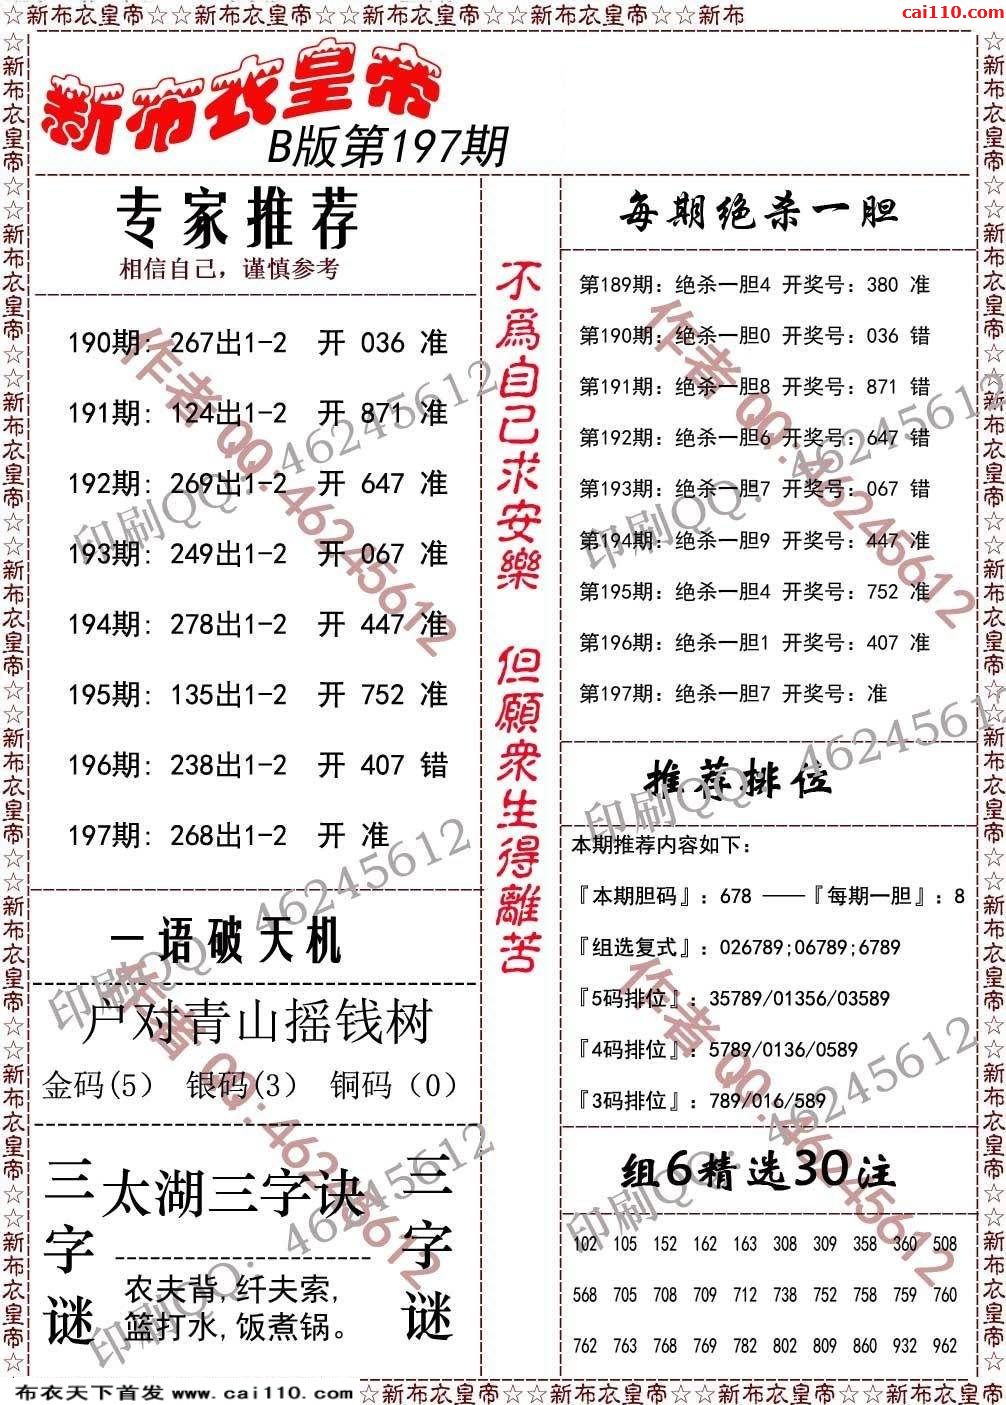 ☆新布衣皇帝☆☆新布衣皇帝☆☆新布衣皇帝☆☆新布衣皇帝☆☆新布衣皇帝☆☆新布
cai110.com
新布衣皇帝
B版第197期
专家推荐
相信自己，谨慎参考
190期: 267出1-2 开 036 准
191期: 124出1-2 开 871 准
192期: 269出1-2 开 647 准
193期: 249出1-2 开 067 准
194期: 278出1-2 开 447 准
195期: 135出1-2 开 752 准
196期: 238出1-2 开 407 错
197期: 268出1-2 开 准
一语破天机
户对青山摇钱树
金码(5） 银码(3） 铜码（0）
三字谜
太湖三字诀
农夫背,纤夫索,
篮打水,饭煮锅。
三字谜
不為自己求安樂 但願衆生得離苦
每期绝杀一胆
第189期：绝杀一胆4 开奖号：380 准
第190期：绝杀一胆0 开奖号：036 错
第191期：绝杀一胆8 开奖号：871 错
第192期：绝杀一胆6 开奖号：647 错
第193期：绝杀一胆7 开奖号：067 错
第194期：绝杀一胆9 开奖号：447 准
第195期：绝杀一胆4 开奖号：752 准
第196期：绝杀一胆1 开奖号：407 准
第197期：绝杀一胆7 开奖号：准
推荐排位
本期推荐内容如下：
『本期胆码』：678 ——『每期一胆』：8
『组选复式』：026789;06789;6789
『5码排位』：35789/01356/03589
『4码排位』：5789/0136/0589
『3码排位』：789/016/589
组6精选30注
102 105 152 162 163 308 309 358 360 508
568 705 708 709 712 738 752 758 759 760
762 763 768 769 782 802 809 860 932 962
作者 QQ:46245612
印刷QQ: 46245612
作者 QQ:46245612
印刷QQ: 46245612
印刷QQ: 46245612
印刷QQ: 46245612
作者 QQ:46245612
印刷QQ: 46245612
作者 QQ:46245612
印刷QQ: 46245612
布衣天下首发 www.cai110.com
☆新布衣皇帝☆☆新布衣皇帝☆☆新布衣皇帝☆☆新布衣皇帝☆